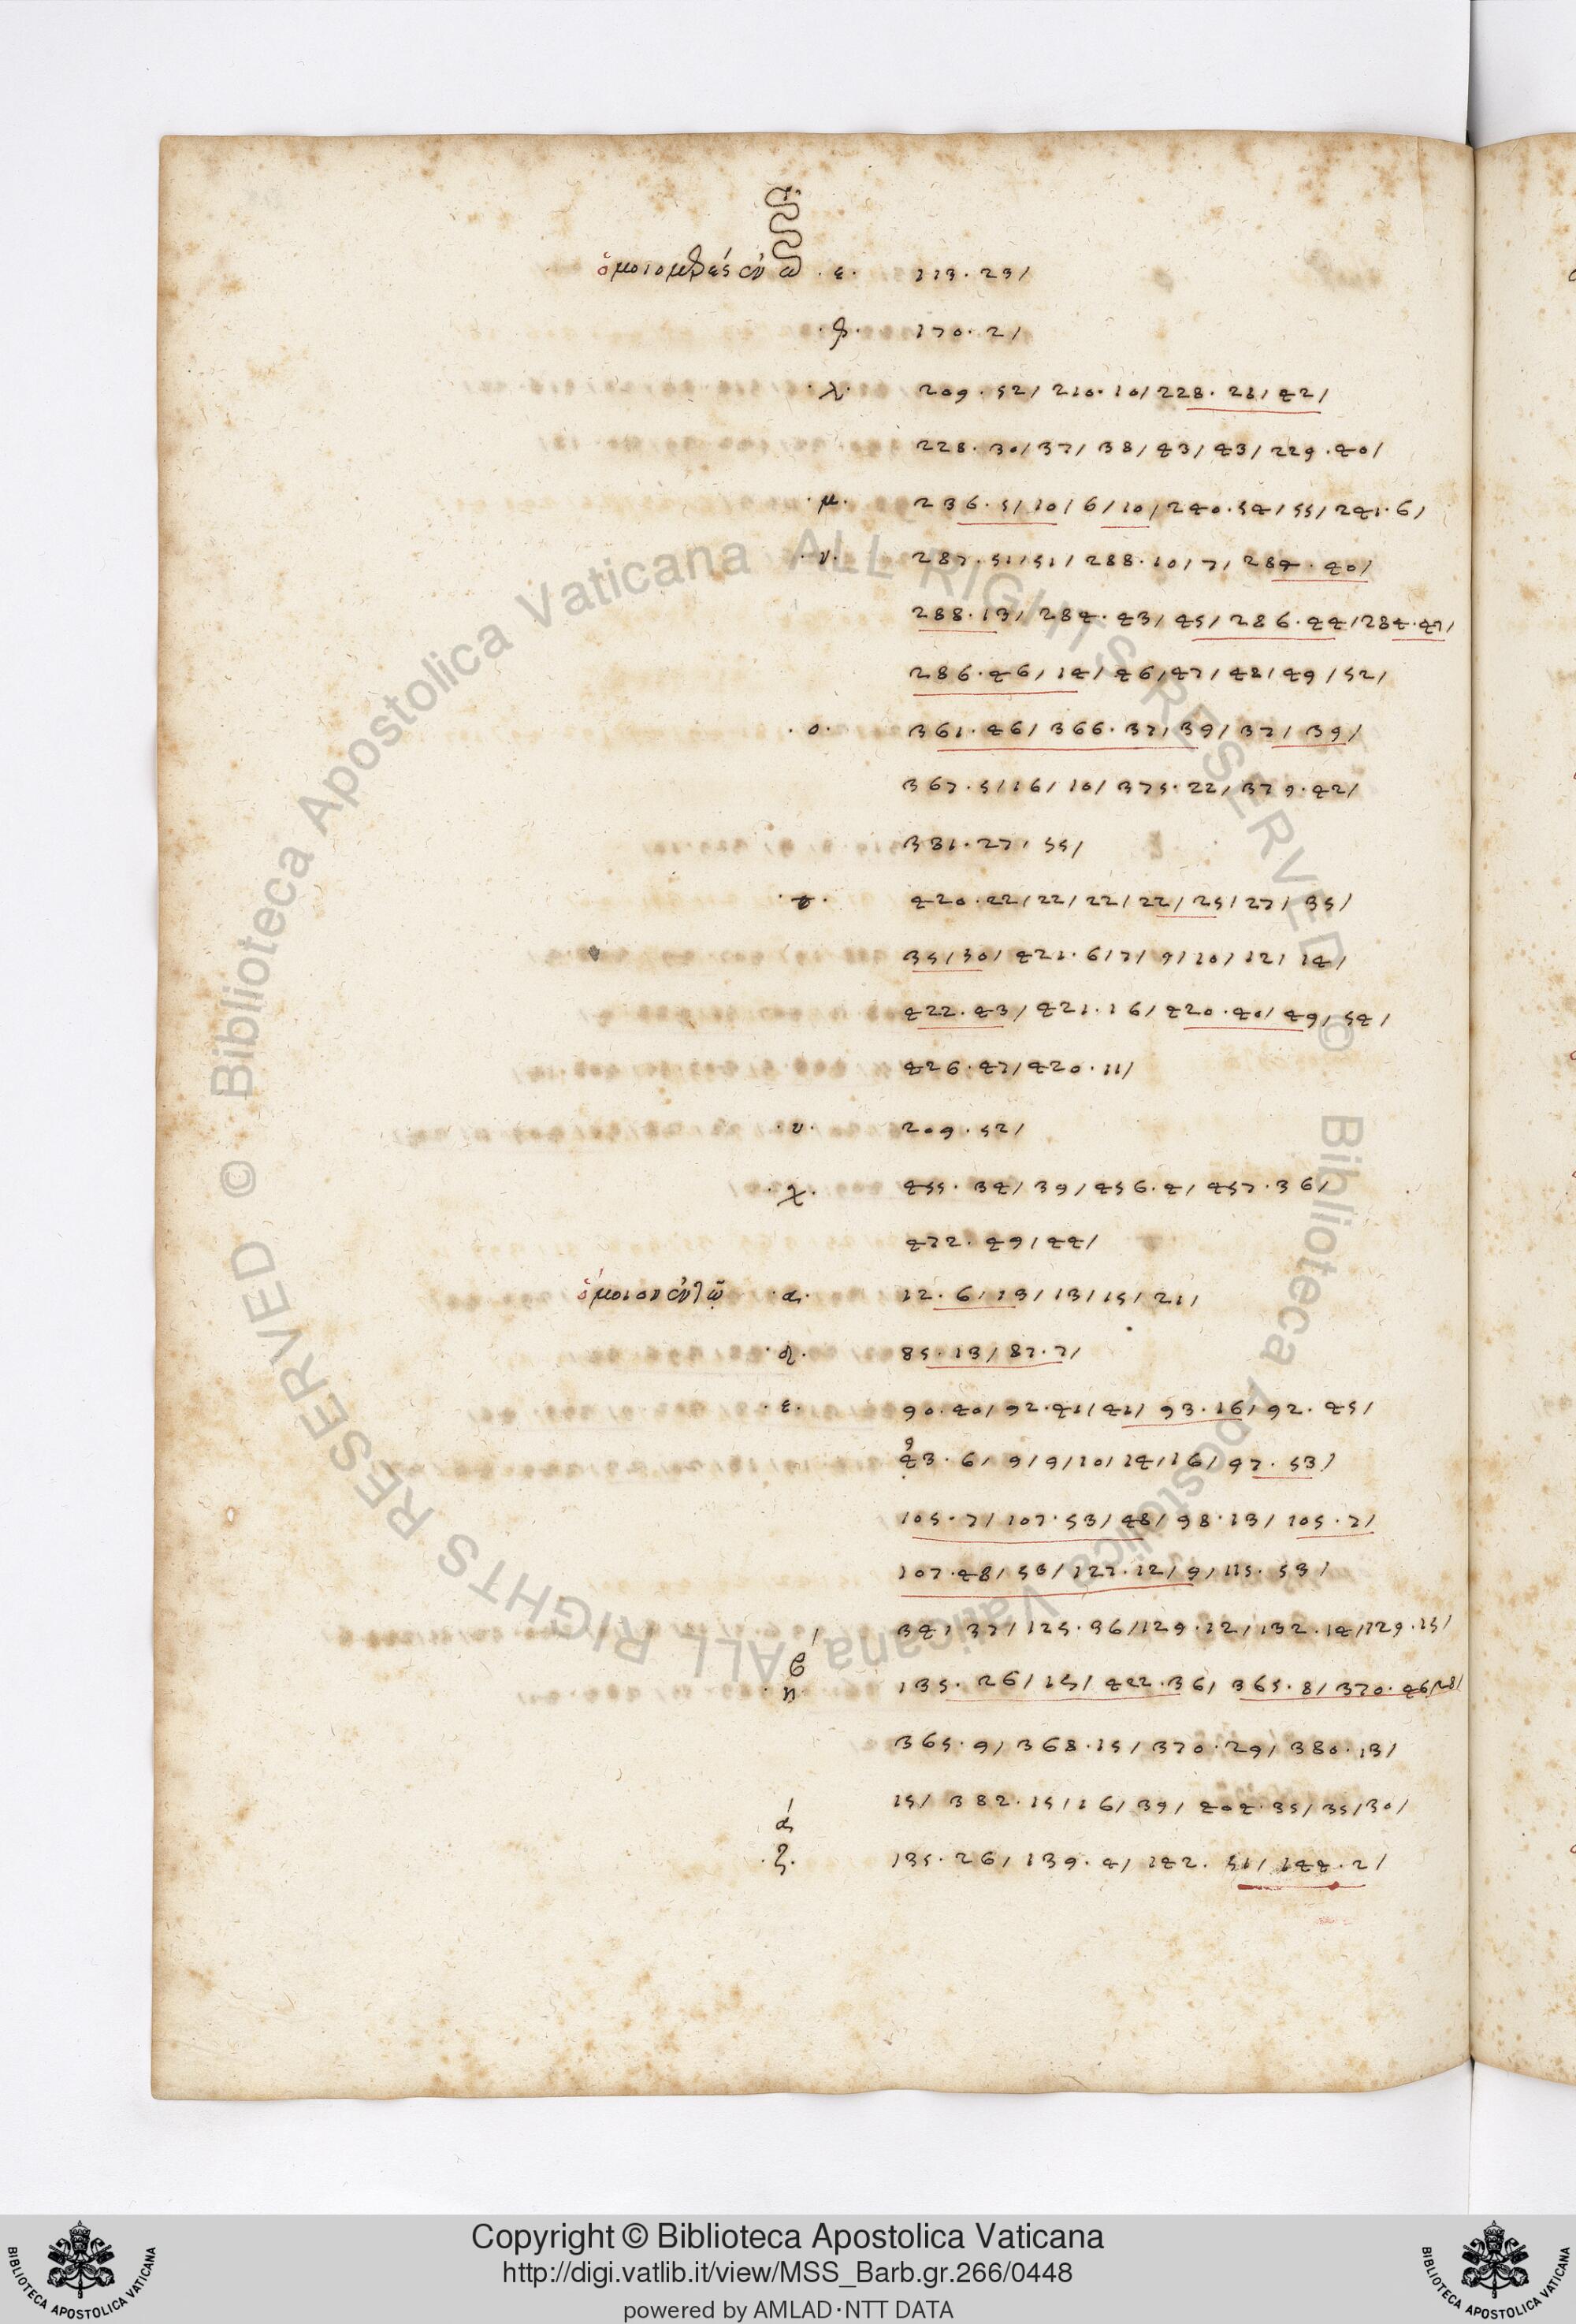 ὁμοιομερὲς ἐν ω . ε . 113 . 23 /
170 . 2 /
. λ . 209 . 52 / 210 . 10 / 228 . 21 / 42 /
228 . 30 / 37 / 38 / 43 / 43 / 229 . 40 /
. μ . 236 . 5 / 10 / 6 / 10 / 240 . 54 / 55 / 241 . 6 /
. ν . 287 . 51 / 51 / 288 . 10 / 7 / 284 . 40 /
288 . 13 / 284 . 43 / 45 / 286 . 44 / 284 . 47 /
286 . 46 / 14 / 46 / 47 / 48 / 49 / 52 /
. ο . 361 . 46 / 366 . 37 / 39 / 37 / 39 /
367 . 5 / 16 / 10 / 375 . 22 / 379 . 42 /
381 . 27 / 55 /
420 . 22 / 22 / 22 / 22 / 25 / 27 / 35 /
35 / 30 / 421 . 6 / 7 / 9 / 10 / 12 / 14 /
422 . 43 / 421 . 16 / 420 . 40 / 49 / 54 /
426 . 47 / 420 . 11 /
. υ . 209 . 52 /
. χ . 455 . 34 / 39 / 456 . 4 / 457 . 36 /
472 . 49 / 44 /
ὅμοιον ἐν τῷ . α . 12 . 6 / 13 / 13 / 15 / 21 /
. δ . 85 . 13 / 87 . 7 /
. ε . 90 . 40 / 92 . 41 / 41 / 93 . 16 / 92 . 45 /
9
43 . 6 / 9 / 9 / 10 / 14 / 16 / 97 . 53 /
105 . 7 / 107 . 53 / 48 / 98 . 13 / 105 . 7 /
107 . 48 / 53 / 127 . 12 / 9 / 115 . 53 /
34 / 37 / 125 . 36 / 129 . 12 / 132 . 14 / 129 . 15 /
β
. η . 135 . 26 / 15 / 422 . 36 / 365 . 8 / 370 . 46 / 28 /
365 . 9 / 368 . 15 / 370 . 29 / 380 . 13 /
15 / 382 . 15 / 16 / 39 / 404 . 35 / 35 / 30 /
ά
. ζ . 135 . 26 / 139 . 4 / 142 . 51 / 144 . 2 /
© Biblioteca Apostolica Vaticana ALL RIGHTS RESERVED
© Biblioteca Apostolica Vaticana ALL RIGHTS RESERVED
Copyright © Biblioteca Apostolica Vaticana
http://digi.vatlib.it/view/MSS_Barb.gr.266/0448
powered by AMLAD·NTT DATA
BIBLIOTECA APOSTOLICA VATICANA
BIBLIOTECA APOSTOLICA VATICANA